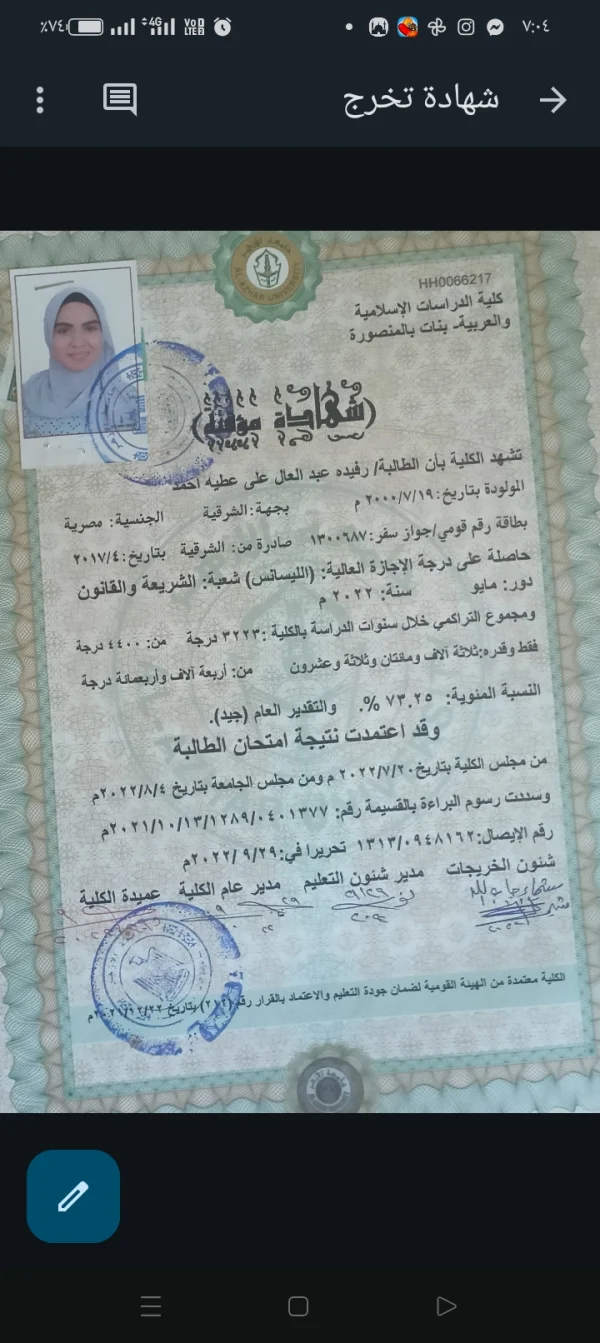 ٪٧٤ 4G VoD LTE2 ٧:٠٤
شهادة تخرج
AL-AZHAR UNIVERSITY
HH0066217
كلية الدراسات الإسلامية
والعربية- بنات بالمنصورة
(شهادة مؤقتة)
تشهد الكلية بأن الطالبة/ رفيده عبد العال على عطيه احمد
المولودة بتاريخ: ٢٠٠٠/٧/١٩ م بجهة: الشرقية الجنسية: مصرية
بطاقة رقم قومي/جواز سفر: ١٣٠٠٦٨٧ صادرة من: الشرقية بتاريخ: ٢٠١٧/٤
حاصلة على درجة الإجازة العالية: (الليسانس) شعبة: الشريعة والقانون
دور: مايو سنة: ٢٠٢٢ م
ومجموع التراكمي خلال سنوات الدراسة بالكلية: ٣٢٢٣ درجة من: ٤٤٠٠ درجة
فقط وقدره: ثلاثة آلاف ومائتان وثلاثة وعشرون من: أربعة آلاف وأربعمائة درجة
النسبة المئوية: ٧٣.٢٥ %. والتقدير العام (جيد).
وقد اعتمدت نتيجة امتحان الطالبة
من مجلس الكلية بتاريخ ٢٠٢٢/٧/٢٠ م ومن مجلس الجامعة بتاريخ ٢٠٢٢/٨/٤م
وسددت رسوم البراءة بالقسيمة رقم: ٢٠٢١/١٠/١٣/١٢٨٩/٠٤٠١٣٧٧م
رقم الإيصال: ١٣١٣/٠٩٤٨١٦٢ تحريرا في: ٢٠٢٢/ ٩/٢٩م
شئون الخريجات مدير شئون التعليم مدير عام الكلية عميدة الكلية
الكلية معتمدة من الهيئة القومية لضمان جودة التعليم والاعتماد بالقرار رقم (٢١٤) بتاريخ ٢٠٢١/١٢/٢٢م